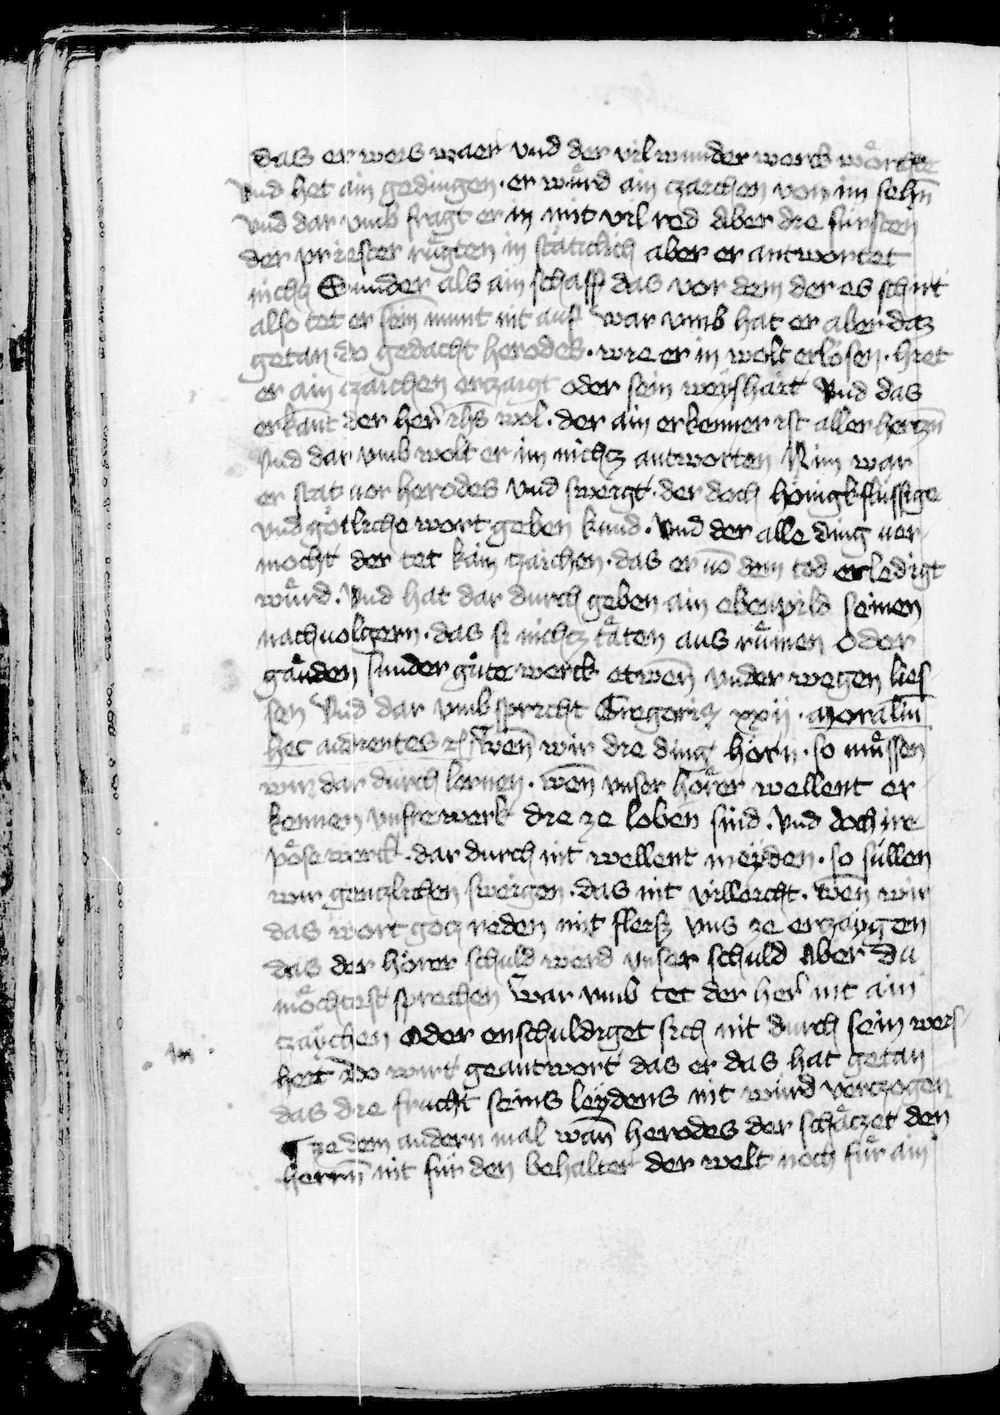 das er weis waer vnd der vil wunder werck wörchte
Vnd het ain gedingen · er würd ain czaichen von im sehn̄
vnd dar vmb fragt er in mit vil red Aber die fürsten
der priester rügten in stäticklich aber er antwortet
nichcz Sunder als ain schaff das vor dem der es schirt
also tet er sein munt nit auf War vmb hat er aber daz
getan · do gedacht herodes · wie er in wolt erlösen · hiet
er ain czaichen erczaigt oder sein weyshait Vnd das
erkant der her̄ ihs̄ wol · der ain erkenner ist aller herczn̄
Vnd dar vmb wolt er im nichcz antworten Nim war
er stat vor herodes vnd sweigt · der doch hönigkflüssige
vnd götliche wort geben kund · Vnd der alle ding ver
mocht der tet kain czaichen · das er vō dem tod erledigt
würd · Vnd hat dar durch geben ain ebenpild seinen
nachuolgern · das si nichcz täten aus rümen oder
gäuden sunder gute werck etwen̄ vnder wegen lies
sen Vnd dar vmb spricht Gregoriꝫ xxij · moraliū
hec audientes ꝛc̄ Wen̄ wir die ding hörn · so müssen
wir dar durch lernen · wen̄ vnser hörer wellent er
kennen vnsre werk die ze loben sind · Vnd doch ire
pöse werck · dar durch nit wellent meyden · so süllen
wir genczlichen sweigen · das nit villeicht · wen̄ wir
das wort gocz reden mit fleisz vns ze erczaygen
das der hörer schuld werd vnser schuld Aber du
möchtist sprechen War vmb tet der her̄ nit ain
czaychen oder enschuldiget sich nit durch sein weis
heit Do wirt geantwort das er das hat getan
das die frucht seins leydens nit würd verczogen
ze dem andern mal wan̄ herodes der schäczet den
herrn̄ nit für den behalter der welt noch für ain